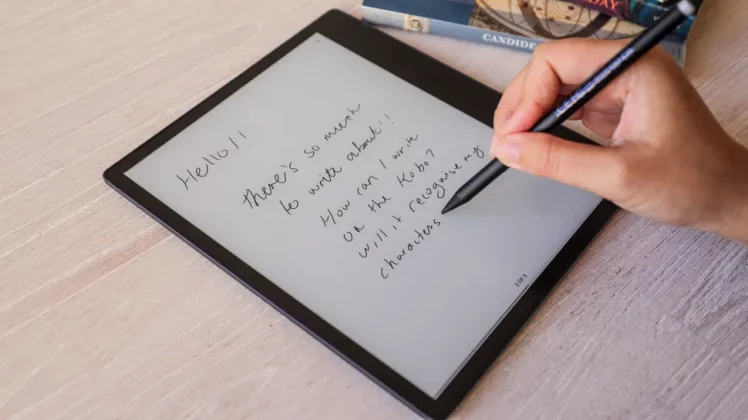 Hello!!
There's so much
to write about!!
How can I write
on the Kobo?
will it recognise my
characters
DAY
CANDIDE